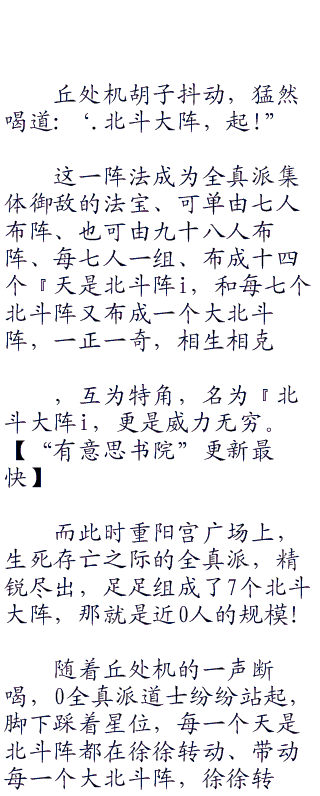 丘处机胡子抖动，猛然
喝道：‘.北斗大阵，起!”
这一阵法成为全真派集
体御敌的法宝、可单由七人
布阵、也可由九十八人布
阵、每七人一组、布成十四
个『天是北斗阵i，和每七个
北斗阵又布成一个大北斗
阵，一正一奇，相生相克
，互为特角，名为『北
斗大阵i，更是威力无穷。
【“有意思书院”更新最
快】
而此时重阳宫广场上，
生死存亡之际的全真派，精
锐尽出，足足组成了7个北斗
大阵，那就是近0人的规模!
随着丘处机的一声断
喝，0全真派道士纷纷站起，
脚下踩着星位，每一个天是
北斗阵都在徐徐转动、带动
每一个大北斗阵，徐徐转